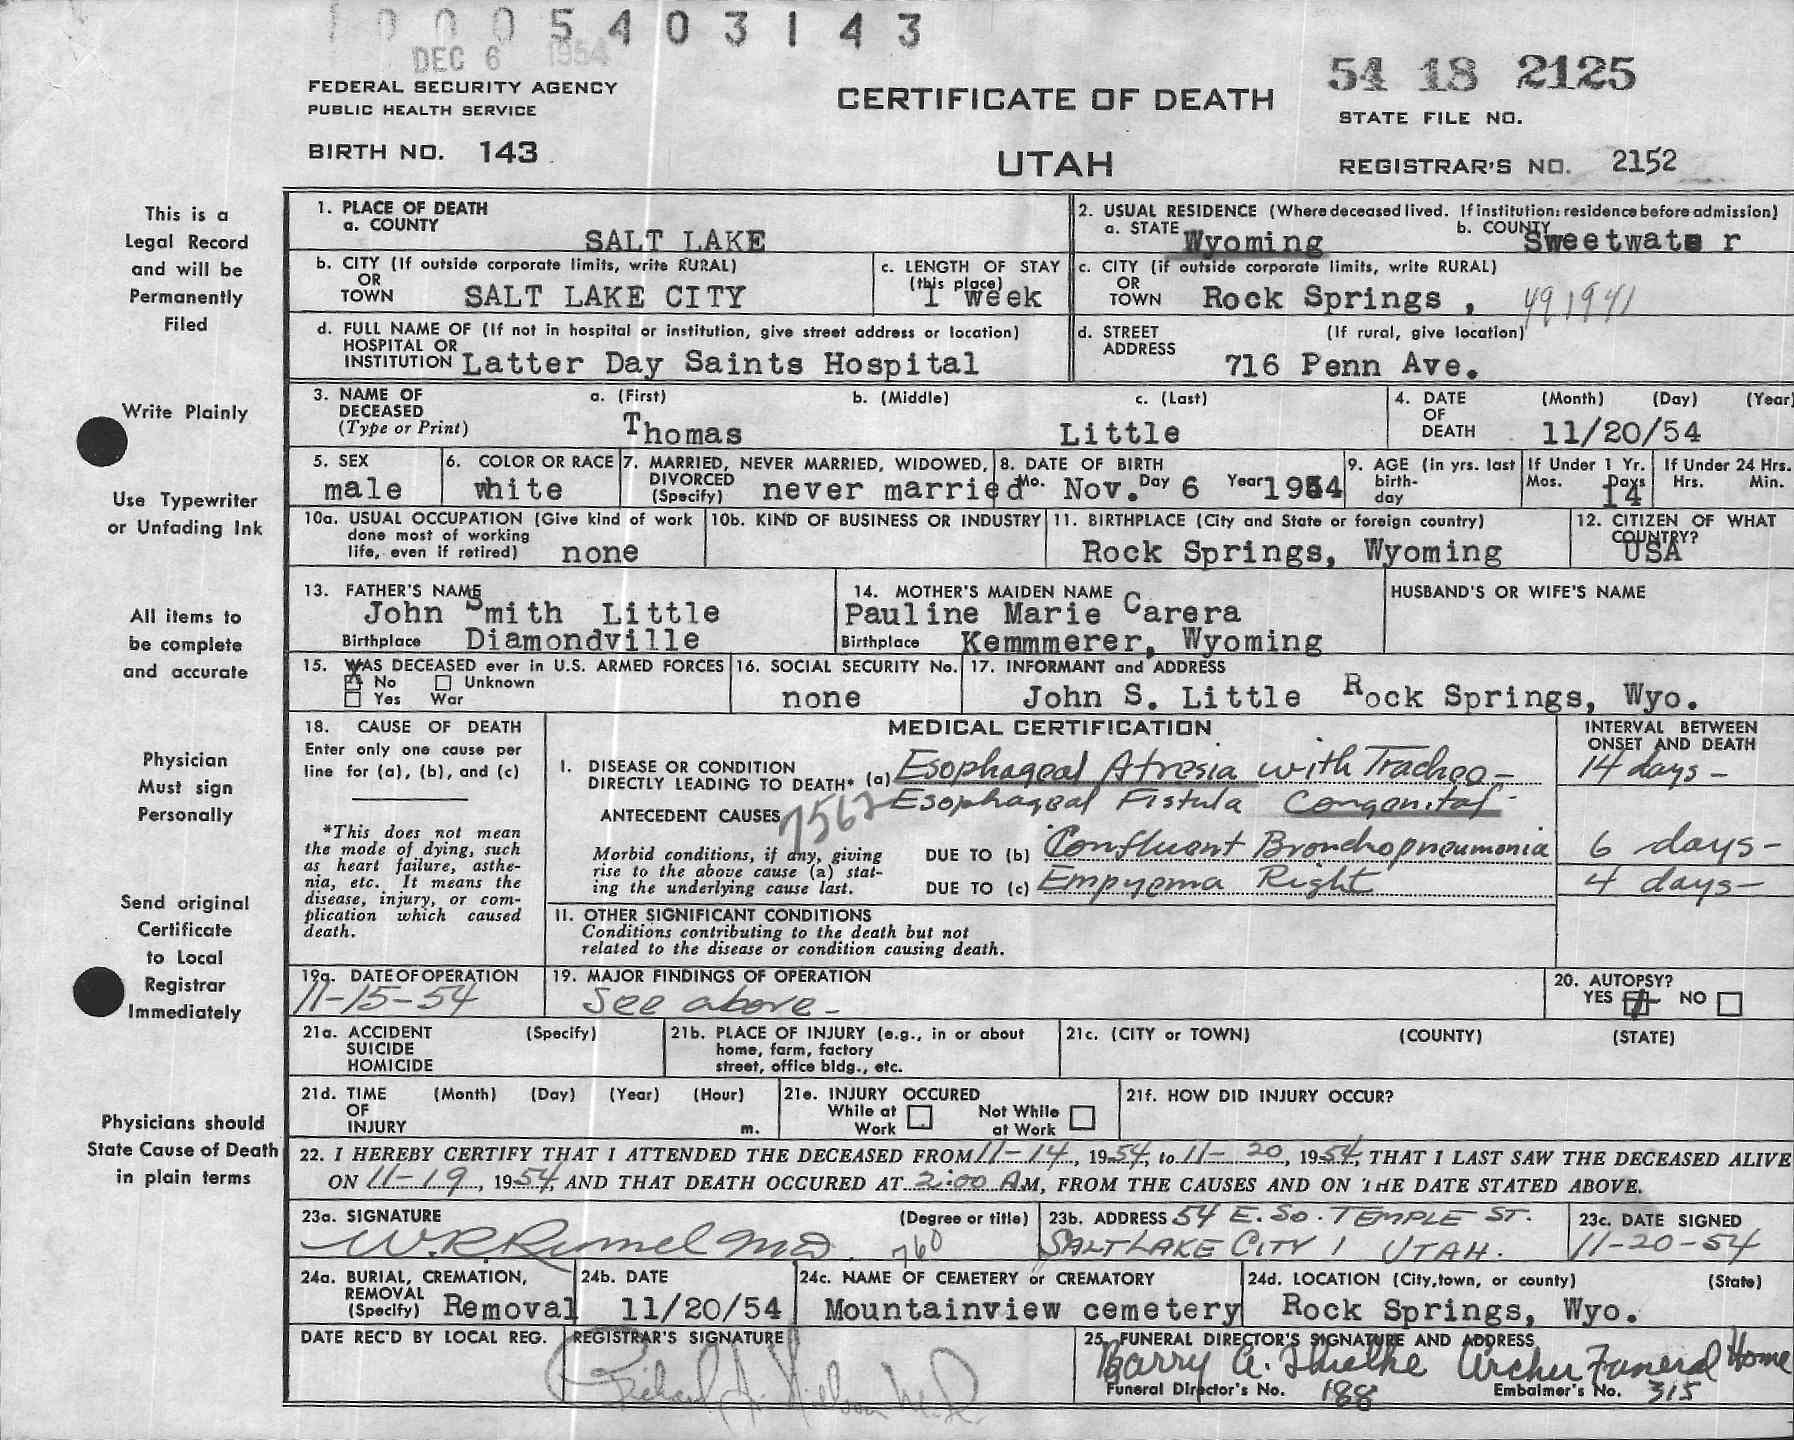 1 0 0 0 5 4 0 3 1 4 3
DEC 6 1954
54 18 2125
FEDERAL SECURITY AGENCY
PUBLIC HEALTH SERVICE
CERTIFICATE OF DEATH
STATE FILE NO.
BIRTH NO. 143
UTAH
REGISTRAR'S NO. 2152
This is a
Legal Record
and will be
Permanently
Filed
Write Plainly
Use Typewriter
or Unfading Ink
All items to
be complete
and accurate
Physician
Must sign
Personally
Send original
Certificate
to Local
Registrar
Immediately
Physicians should
State Cause of Death
in plain terms
1. PLACE OF DEATH
a. COUNTY
SALT LAKE
2. USUAL RESIDENCE (Where deceased lived. If institution: residence before admission)
a. STATE Wyoming b. COUNTY Sweetwate r
b. CITY (If outside corporate limits, write RURAL)
OR
TOWN SALT LAKE CITY
c. LENGTH OF STAY
(this place)
1 week
c. CITY (if outside corporate limits, write RURAL)
OR
TOWN Rock Springs , 491941
d. FULL NAME OF (If not in hospital or institution, give street address or location)
HOSPITAL OR
INSTITUTION Latter Day Saints Hospital
d. STREET (If rural, give location)
ADDRESS 716 Penn Ave.
3. NAME OF a. (First) b. (Middle) c. (Last)
DECEASED
(Type or Print) Thomas Little
4. DATE (Month) (Day) (Year)
OF
DEATH 11/20/54
5. SEX
male
6. COLOR OR RACE
white
7. MARRIED, NEVER MARRIED, WIDOWED,
DIVORCED
(Specify) never married
8. DATE OF BIRTH
Mo. Nov. Day 6 Year 1954
9. AGE (in yrs. last
birth-
day
If Under 1 Yr.
Mos. Days
14
If Under 24 Hrs.
Hrs. Min.
10a. USUAL OCCUPATION (Give kind of work
done most of working
life, even if retired) none
10b. KIND OF BUSINESS OR INDUSTRY
11. BIRTHPLACE (City and State or foreign country)
Rock Springs, Wyoming
12. CITIZEN OF WHAT
COUNTRY?
USA
13. FATHER'S NAME
John Smith Little
Birthplace Diamondville
14. MOTHER'S MAIDEN NAME
Pauline Marie Carera
Birthplace Kemmmerer, Wyoming
HUSBAND'S OR WIFE'S NAME
15. WAS DECEASED ever in U.S. ARMED FORCES
X No Unknown
Yes War
16. SOCIAL SECURITY No.
none
17. INFORMANT and ADDRESS
John S. Little Rock Springs, Wyo.
18. CAUSE OF DEATH
Enter only one cause per
line for (a), (b), and (c)
*This does not mean
the mode of dying, such
as heart failure, asthe-
nia, etc. It means the
disease, injury, or com-
plication which caused
death.
MEDICAL CERTIFICATION
INTERVAL BETWEEN
ONSET AND DEATH
I. DISEASE OR CONDITION
DIRECTLY LEADING TO DEATH* (a) Esophageal Atresia with Tracheo- 14 days-
Esophageal Fistula Congenital-
ANTECEDENT CAUSES 7562
Morbid conditions, if any, giving
rise to the above cause (a) stat-
ing the underlying cause last.
DUE TO (b) Confluent Bronchopneumonia 6 days-
DUE TO (c) Empyema Right 4 days-
II. OTHER SIGNIFICANT CONDITIONS
Conditions contributing to the death but not
related to the disease or condition causing death.
19a. DATE OF OPERATION
11-15-54
19. MAJOR FINDINGS OF OPERATION
See above-
20. AUTOPSY?
YES NO
21a. ACCIDENT (Specify)
SUICIDE
HOMICIDE
21b. PLACE OF INJURY (e.g., in or about
home, farm, factory
street, office bldg., etc.
21c. (CITY or TOWN) (COUNTY) (STATE)
21d. TIME (Month) (Day) (Year) (Hour)
OF
INJURY m.
21e. INJURY OCCURED
While at Work
Not While at Work
21f. HOW DID INJURY OCCUR?
22. I HEREBY CERTIFY THAT I ATTENDED THE DECEASED FROM 11-14, 1954, to 11-20, 1954, THAT I LAST SAW THE DECEASED ALIVE
ON 11-19, 1954, AND THAT DEATH OCCURED AT 2:00 AM, FROM THE CAUSES AND ON THE DATE STATED ABOVE.
23a. SIGNATURE (Degree or title)
W.R. Rumel MD 760
23b. ADDRESS 54 E. SO. TEMPLE ST.
SALT LAKE CITY 1 UTAH.
23c. DATE SIGNED
11-20-54
24a. BURIAL, CREMATION,
REMOVAL
(Specify) Removal
24b. DATE
11/20/54
24c. NAME OF CEMETERY or CREMATORY
Mountainview cemetery
24d. LOCATION (City, town, or county) (State)
Rock Springs, Wyo.
DATE REC'D BY LOCAL REG.
REGISTRAR'S SIGNATURE
25. FUNERAL DIRECTOR'S SIGNATURE AND ADDRESS
Barry A. Archer Funeral Home
Funeral Director's No. 188 Embalmer's No. 315